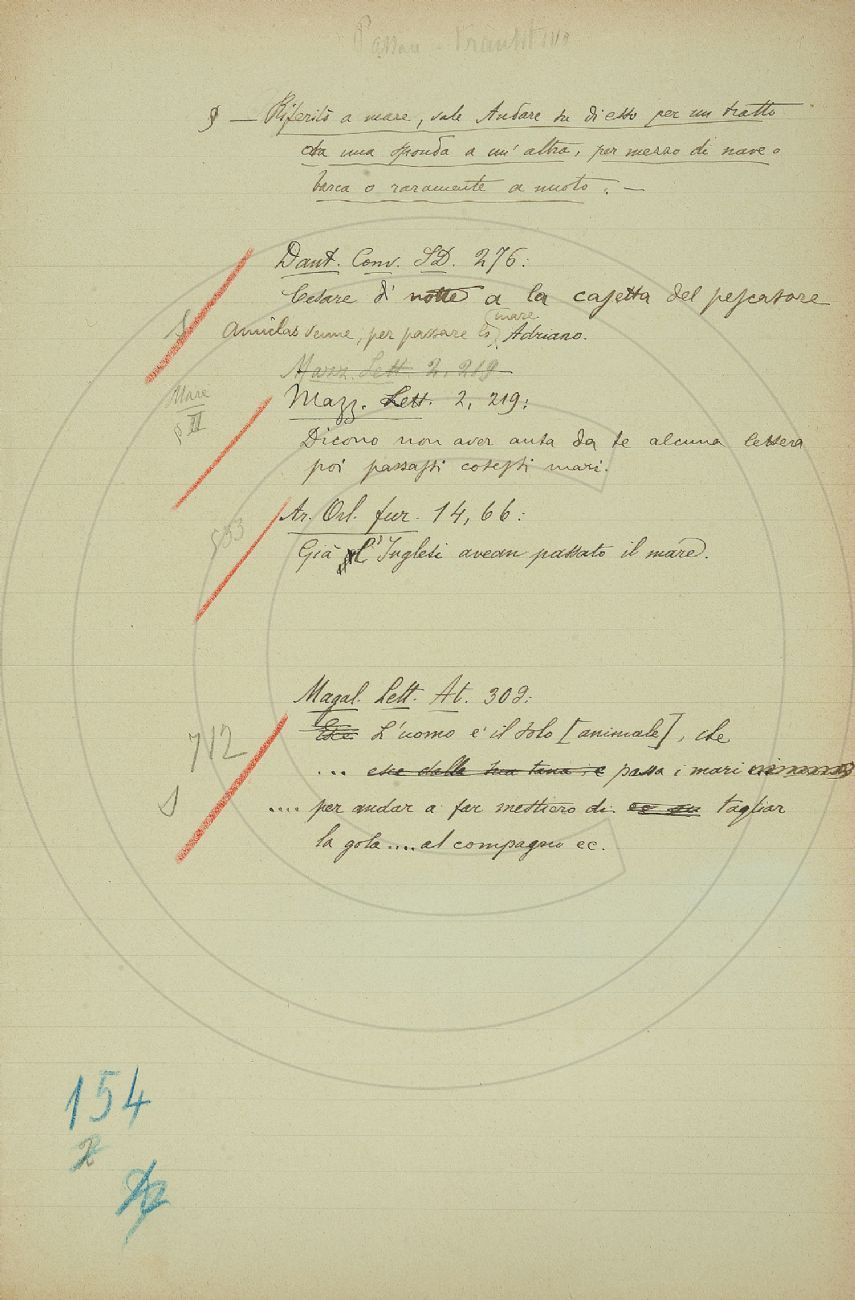 Passare - Transit
§ — Riferito a mare, vale Andare su di esso per un tratto
da una sponda a un' altra, per mezzo di nave o
barca o raramente a nuoto. —
Dant. Conv. SD. 276:
Cesare di notte a la casetta del pescatore
Amiclas venne, per passare lo mare Adriano.
Mazz. Lett. 2, 219
Mare
§ II
Mazz. Lett. 2, 219:
Dicono non aver auta da te alcuna lettera
poi passasti cotesti mari.
593
Ar. Orl. fur. 14, 66:
Già l'Inglesi avean passato il mare.
Magal. Lett. At. 309:
712
L'uomo è il solo [animale], che
... esce dalla sua tana, e passa i mari
.... per andar a far mestiero di tagliar
la gola .... al compagno ec.
154
2